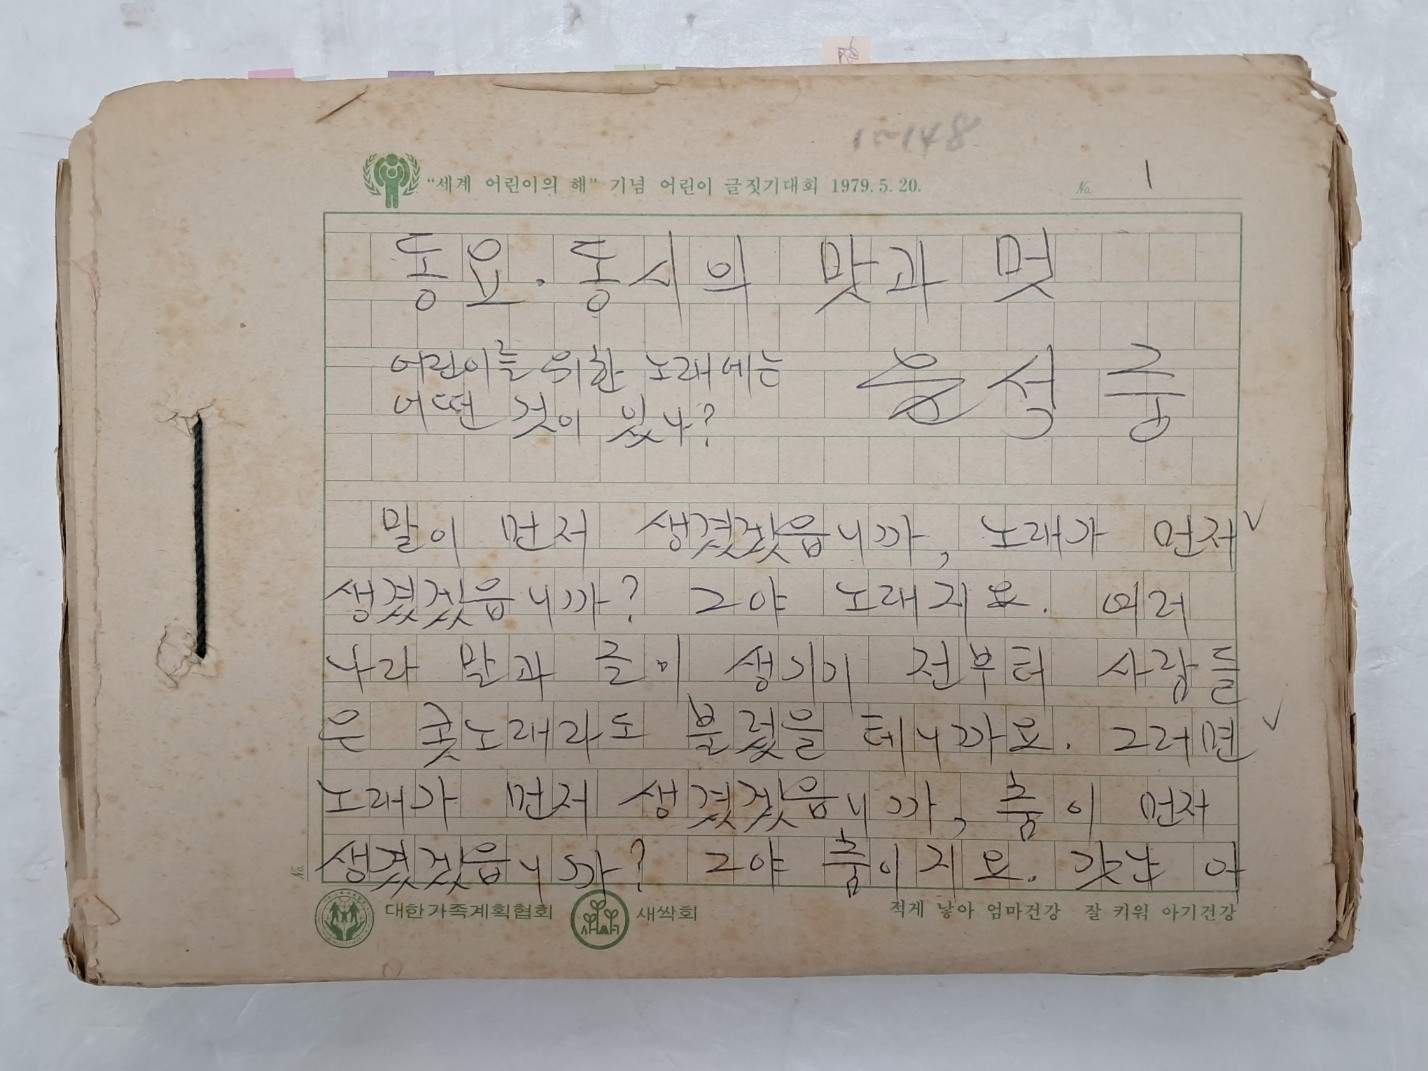 1~148
"세계 어린이의 해" 기념 어린이 글짓기대회 1979. 5. 20.
№ 1
동요·동시의 맛과 멋
어린이를 위한 노래에는
어떤 것이 있나?
윤석중
말이 먼저 생겼겠읍니까, 노래가 먼저
생겼겠읍니까? 그야 노래지요. 여러
나라 말과 글이 생기기 전부터 사람들
은 콧노래라도 불렀을 테니까요. 그러면
노래가 먼저 생겼겠읍니까, 춤이 먼저
생겼겠읍니까? 그야 춤이지요. 갓난 아
№
대한가족계획협회
새싹회
적게 낳아 엄마건강 잘 키워 아기건강